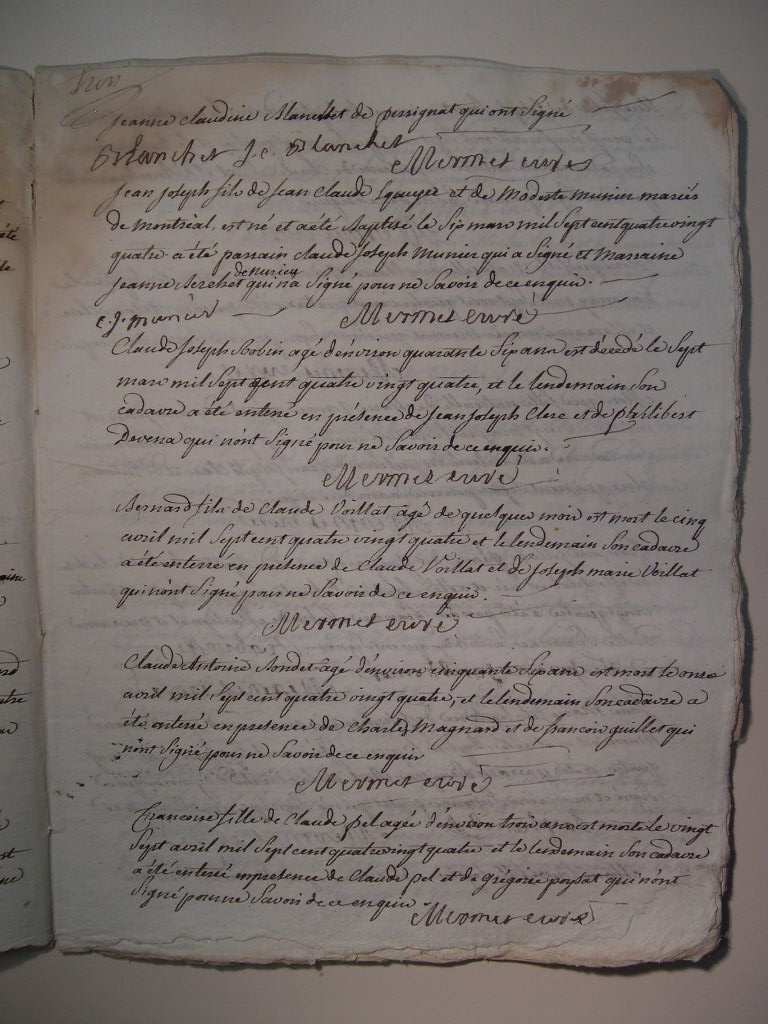 jeanne claudine Blanchet de perrignat qui ont Signé
Blanchet j. c. Blanchet Mermet curé
jean joseph fils de jean claude Ecuyer et de Modeste munier mariés
de montréal, est né et a été Baptisé le Six mars mil Sept cent quatre vingt
quatre a été parrain claude joseph Munier qui a Signé et Marraine
jeanne qui n'a Signé pour ne Savoir de ce enquis.
c. j. munier Mermet curé
Claude joseph Robin agé d'environ quarante Six ans est décédé le Sept
mars mil Sept cent quatre vingt quatre, et le lendemain Son
cadavre a été enterré en présence de jean joseph Clerc et de philibert
Devena qui n'ont Signé pour ne Savoir de ce enquis.
Mermet curé
Bernard fils de Claude Voillat agé de quelques mois est mort le cinq
avril mil Sept cent quatre vingt quatre et le lendemain Son cadavre
a été enterré en présence de Claude Voillat et de joseph marie Voillat
qui n'ont Signé pour ne Savoir de ce enquis.
Mermet curé
Claude Antoine Rondet agé d'environ cinquante Six ans est mort le onze
avril mil Sept cent quatre vingt quatre, et le lendemain Son cadavre a
été enterré en présence de Charles Magnard et de francois guillet qui
n'ont Signé pour ne Savoir de ce enquis
Mermet curé
Francoise fille de Claude pel agée d'environ trois ans est morte le vingt
Sept avril mil Sept cent quatre vingt quatre et le lendemain Son cadavre
a été enterré en présence de Claude pel et de grégoire poysat qui n'ont
Signé pour ne Savoir de ce enquis Mermet curé